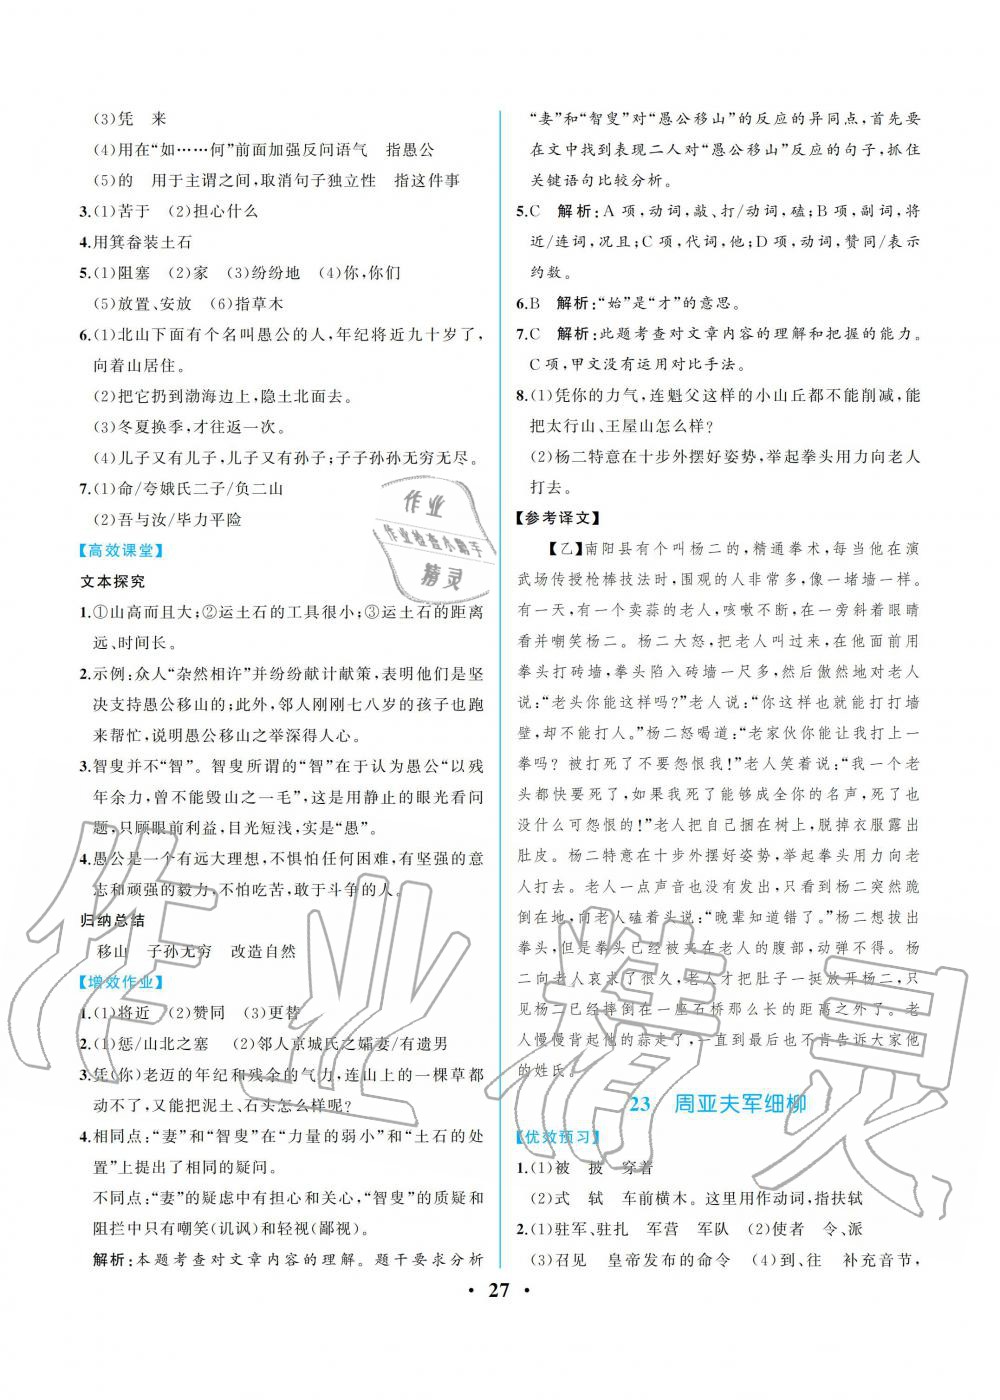 (3)凭　来
(4)用在“如……何”前面加强反问语气　指愚公
(5)的　用于主谓之间,取消句子独立性　指这件事
3.(1)苦于　(2)担心什么
4.用箕畚装土石
5.(1)阻塞　(2)家　(3)纷纷地　(4)你,你们
(5)放置、安放　(6)指草木
6.(1)北山下面有个名叫愚公的人,年纪将近九十岁了,
向着山居住。
(2)把它扔到渤海边上,隐土北面去。
(3)冬夏换季,才往返一次。
(4)儿子又有儿子,儿子又有孙子;子子孙孙无穷无尽。
7.(1)命/夸娥氏二子/负二山
(2)吾与汝/毕力平险
【高效课堂】
文本探究
1.①山高而且大;②运土石的工具很小;③运土石的距离
远、时间长。
2.示例:众人“杂然相许”并纷纷献计献策,表明他们是坚
决支持愚公移山的;此外,邻人刚刚七八岁的孩子也跑
来帮忙,说明愚公移山之举深得人心。
3.智叟并不“智”。智叟所谓的“智”在于认为愚公“以残
年余力,曾不能毁山之一毛”,这是用静止的眼光看问
题,只顾眼前利益,目光短浅,实是“愚”。
4.愚公是一个有远大理想,不惧怕任何困难,有坚强的意
志和顽强的毅力,不怕吃苦,敢于斗争的人。
归纳总结
移山　子孙无穷　改造自然
【增效作业】
1.(1)将近　(2)赞同　(3)更替
2.(1)惩/山北之塞　(2)邻人京城氏之孀妻/有遗男
3.凭(你)老迈的年纪和残余的气力,连山上的一棵草都
动不了,又能把泥土、石头怎么样呢?
4.相同点:“妻”和“智叟”在“力量的弱小”和“土石的处
置”上提出了相同的疑问。
不同点:“妻”的疑虑中有担心和关心,“智叟”的质疑和
阻拦中只有嘲笑(讥讽)和轻视(鄙视)。
解析:本题考查对文章内容的理解。题干要求分析
“妻”和“智叟”对“愚公移山”的反应的异同点,首先要
在文中找到表现二人对“愚公移山”反应的句子,抓住
关键语句比较分析。
5.C　解析:A 项,动词,敲、打/动词,磕;B 项,副词,将
近/连词,况且;C 项,代词,他;D 项,动词,赞同/表示
约数。
6.B　解析:“始”是“才”的意思。
7.C　解析:此题考查对文章内容的理解和把握的能力。
C 项,甲文没有运用对比手法。
8.(1)凭你的力气,连魁父这样的小山丘都不能削减,能
把太行山、王屋山怎么样?
(2)杨二特意在十步外摆好姿势,举起拳头用力向老人
打去。
【参考译文】
【乙】南阳县有个叫杨二的,精通拳术,每当他在演
武场传授枪棒技法时,围观的人非常多,像一堵墙一样。
有一天,有一个卖蒜的老人,咳嗽不断,在一旁斜着眼睛
看并嘲笑杨二。杨二大怒,把老人叫过来,在他面前用
拳头打砖墙,拳头陷入砖墙一尺多,然后傲然地对老人
说:“老头你能这样吗?”老人说:“你这样也就能打打墙
壁,却不能打人。”杨二怒喝道:“老家伙你能让我打一
拳吗?被打死了不要怨恨我!”老人笑着说:“我一个老
头都快要死了,如果我死了能够成全你的名声,死了也
没什么可怨恨的!”老人把自己捆在树上,脱掉衣服露出
肚皮。杨二特意在十步外摆好姿势,举起拳头用力向老
人打去。老人一点声音也没有发出,只看到杨二突然跪
倒在地,向老人磕着头说:“晚辈知道错了。”杨二想拔出
拳头,但是拳头已经被夹在老人的腹部,动弹不得。杨
二向老人哀求了很久,老人才把肚子一挺放开杨二,只
见杨二已经摔倒在一座石桥那么长的距离之外了。老
人慢慢背起他的蒜走了,一直到最后也不肯告诉大家他
的姓氏。
23　周亚夫军细柳
【优效预习】
1.(1)被　披　穿着
(2)式　轼　车前横木。这里用作动词,指扶轼
2.(1)驻军、驻扎　军营　军队　(2)使者　令、派
(3)召见　皇帝发布的命令　(4)到、往　补充音节,
• 27 •
作业
作业检查小助手
精灵
作业精灵